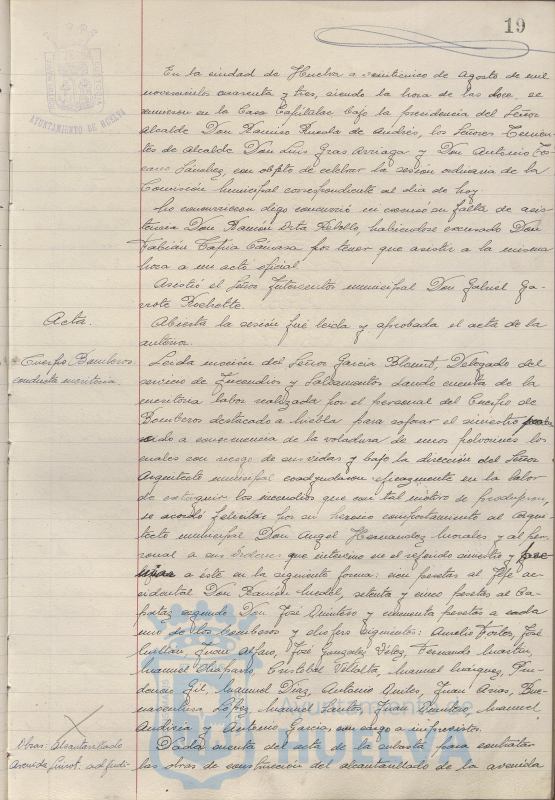 19
AYUNTAMIENTO DE HUELVA
En la ciudad de Huelva a veinticinco de Agosto de mil
novecientos cuarenta y tres, siendo la hora de las doce, se
reunieron en la Casa Capitular bajo la presidencia del Señor
Alcalde Don Ramiro de Andrés, los Señores Tenien-
tes de Alcalde Don Luis Gras Arriaga y Don Antonio
Sánchez, con objeto de celebrar la sesión ordinaria de la
Comisión municipal correspondiente al día de hoy.
No concurrieron digo concurrió ni excusó su falta de asis-
tencia Don Ramón Orta Rebollo, habiéndose excusado Don
Fabián Tapia por tener que asistir a la misma
hora a un acto oficial.
Asistió el Señor Interventor municipal Don Gabriel Ga-
rrote
Acta.
Abierta la sesión fué leída y aprobada el acta de la
anterior.
Cuerpo Bomberos.
conducta meritoria.
Leída moción del Señor García Delegado del
servicio de Incendios y Salvamentos dando cuenta de la
meritoria labor realizada por el personal del Cuerpo de
Bomberos destacado a Niebla para sofocar el siniestro
a consecuencia de la voladura de unos polvorines los
cuales con riesgo de sus vidas y bajo la dirección del Señor
Arquitecto municipal coadyudaron eficazmente en la labor
de extinguir los incendios que con tal motivo se produjeron,
se acordó felicitar por su heroico comportamiento al Arqui-
tecto municipal Don Angel Hernandez Morales y al per-
sonal a sus órdenes que intervino en el referido siniestro y
a éste en la siguiente forma: cien pesetas al Jefe ac-
cidental Don Ramón setenta y cinco pesetas al Ca-
pataz segundo Don José Quintero y cincuenta pesetas a cada
uno de los bomberos y chofers siguientes: Aurelio José
Juan Alfaro, José González Vélez, Fernando Martín,
Manuel Cristobal Villalta, Manuel Márquez, Pru-
dencio Gil, Manuel Díaz, Antonio Juan Arias, Bue-
naventura López, Manuel Santos, Juan Manuel
y Antonio García, con cargo a imprevistos.
Obras alcantarillado
Avenida adjudi-
Dada cuenta del acta de la subasta para contratar
las obras de construcción del alcantarillado de la avenida
Ayuntamiento de
HUELVA